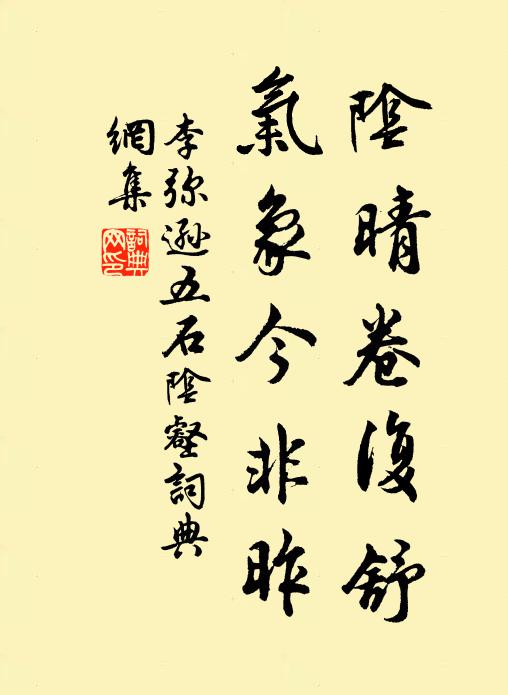 陰晴卷復舒
氣象今非昨
李弥遜五石陰壑詞典
網集
詞典網印